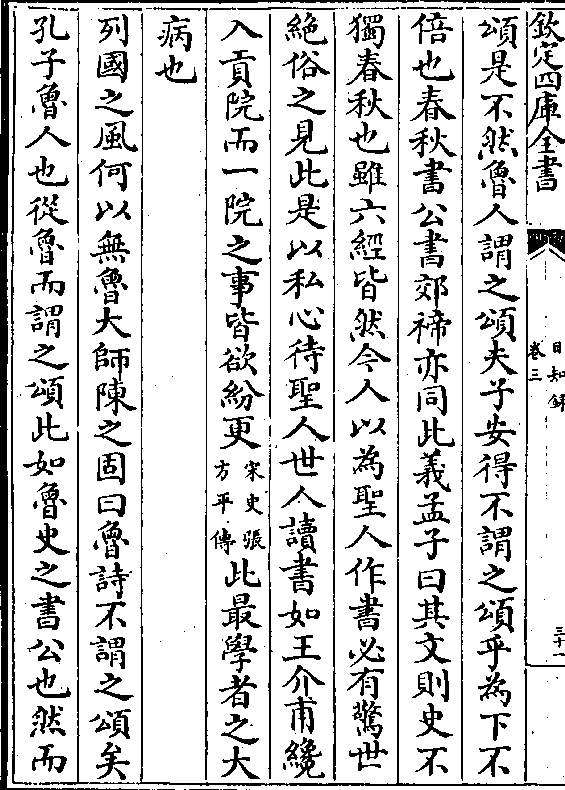 欽定四庫全書
日知錄
卷三
三十一
頌是不然魯人謂之頌夫子安得不謂之頌乎為下不
倍也春秋書公書郊禘亦同此義孟子曰其文則史不
獨春秋也雖六經皆然今人以為聖人作書必有驚世
絶俗之見此是以私心待聖人世人讀書如王介甫纔
入貢院而一院之事皆欲紛更宋史張方平傳此最學者之大
病也
列國之風何以無魯大師陳之固曰魯詩不謂之頌矣
孔子魯人也從魯而謂之頌此如魯史之書公也然而